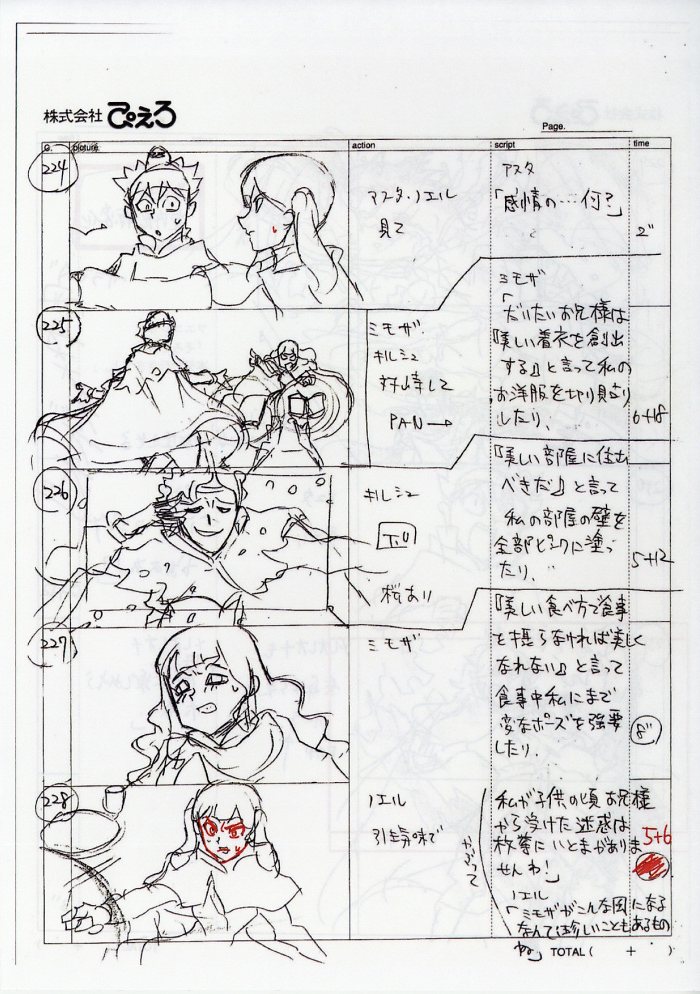 株式会社 ぴえろ
Page.
C. picture action script time
224
アスタ・ノエル
見て
アスタ
「感情の…何?」
2"
225
ミモザ
キルシュ
対峙して
PAN→
ミモザ
「だいたいお兄様は
『美しい着衣を創出
する』と言って私の
お洋服を切り見たり
したり、
6+18
226
キルシュ
桜あり
『美しい部屋に住む
べきだ』と言って
私の部屋の壁を
全部ピンクに塗っ
たり、
5+12
227
ミモザ
『美しい食べ方で食事
を摂らなければ美しく
なれない』と言って
食事中私にまで
変なポーズを強要
したり、
8"
228
ノエル
引き気味で
かぶって
私が子供の頃お兄様
から受けた迷惑は
枚挙にいとまがありま
せんわ!」
5+6
ノエル
「ミモザがこんな風になる
なんて珍しいこともあるもの
ね」
TOTAL ( + )